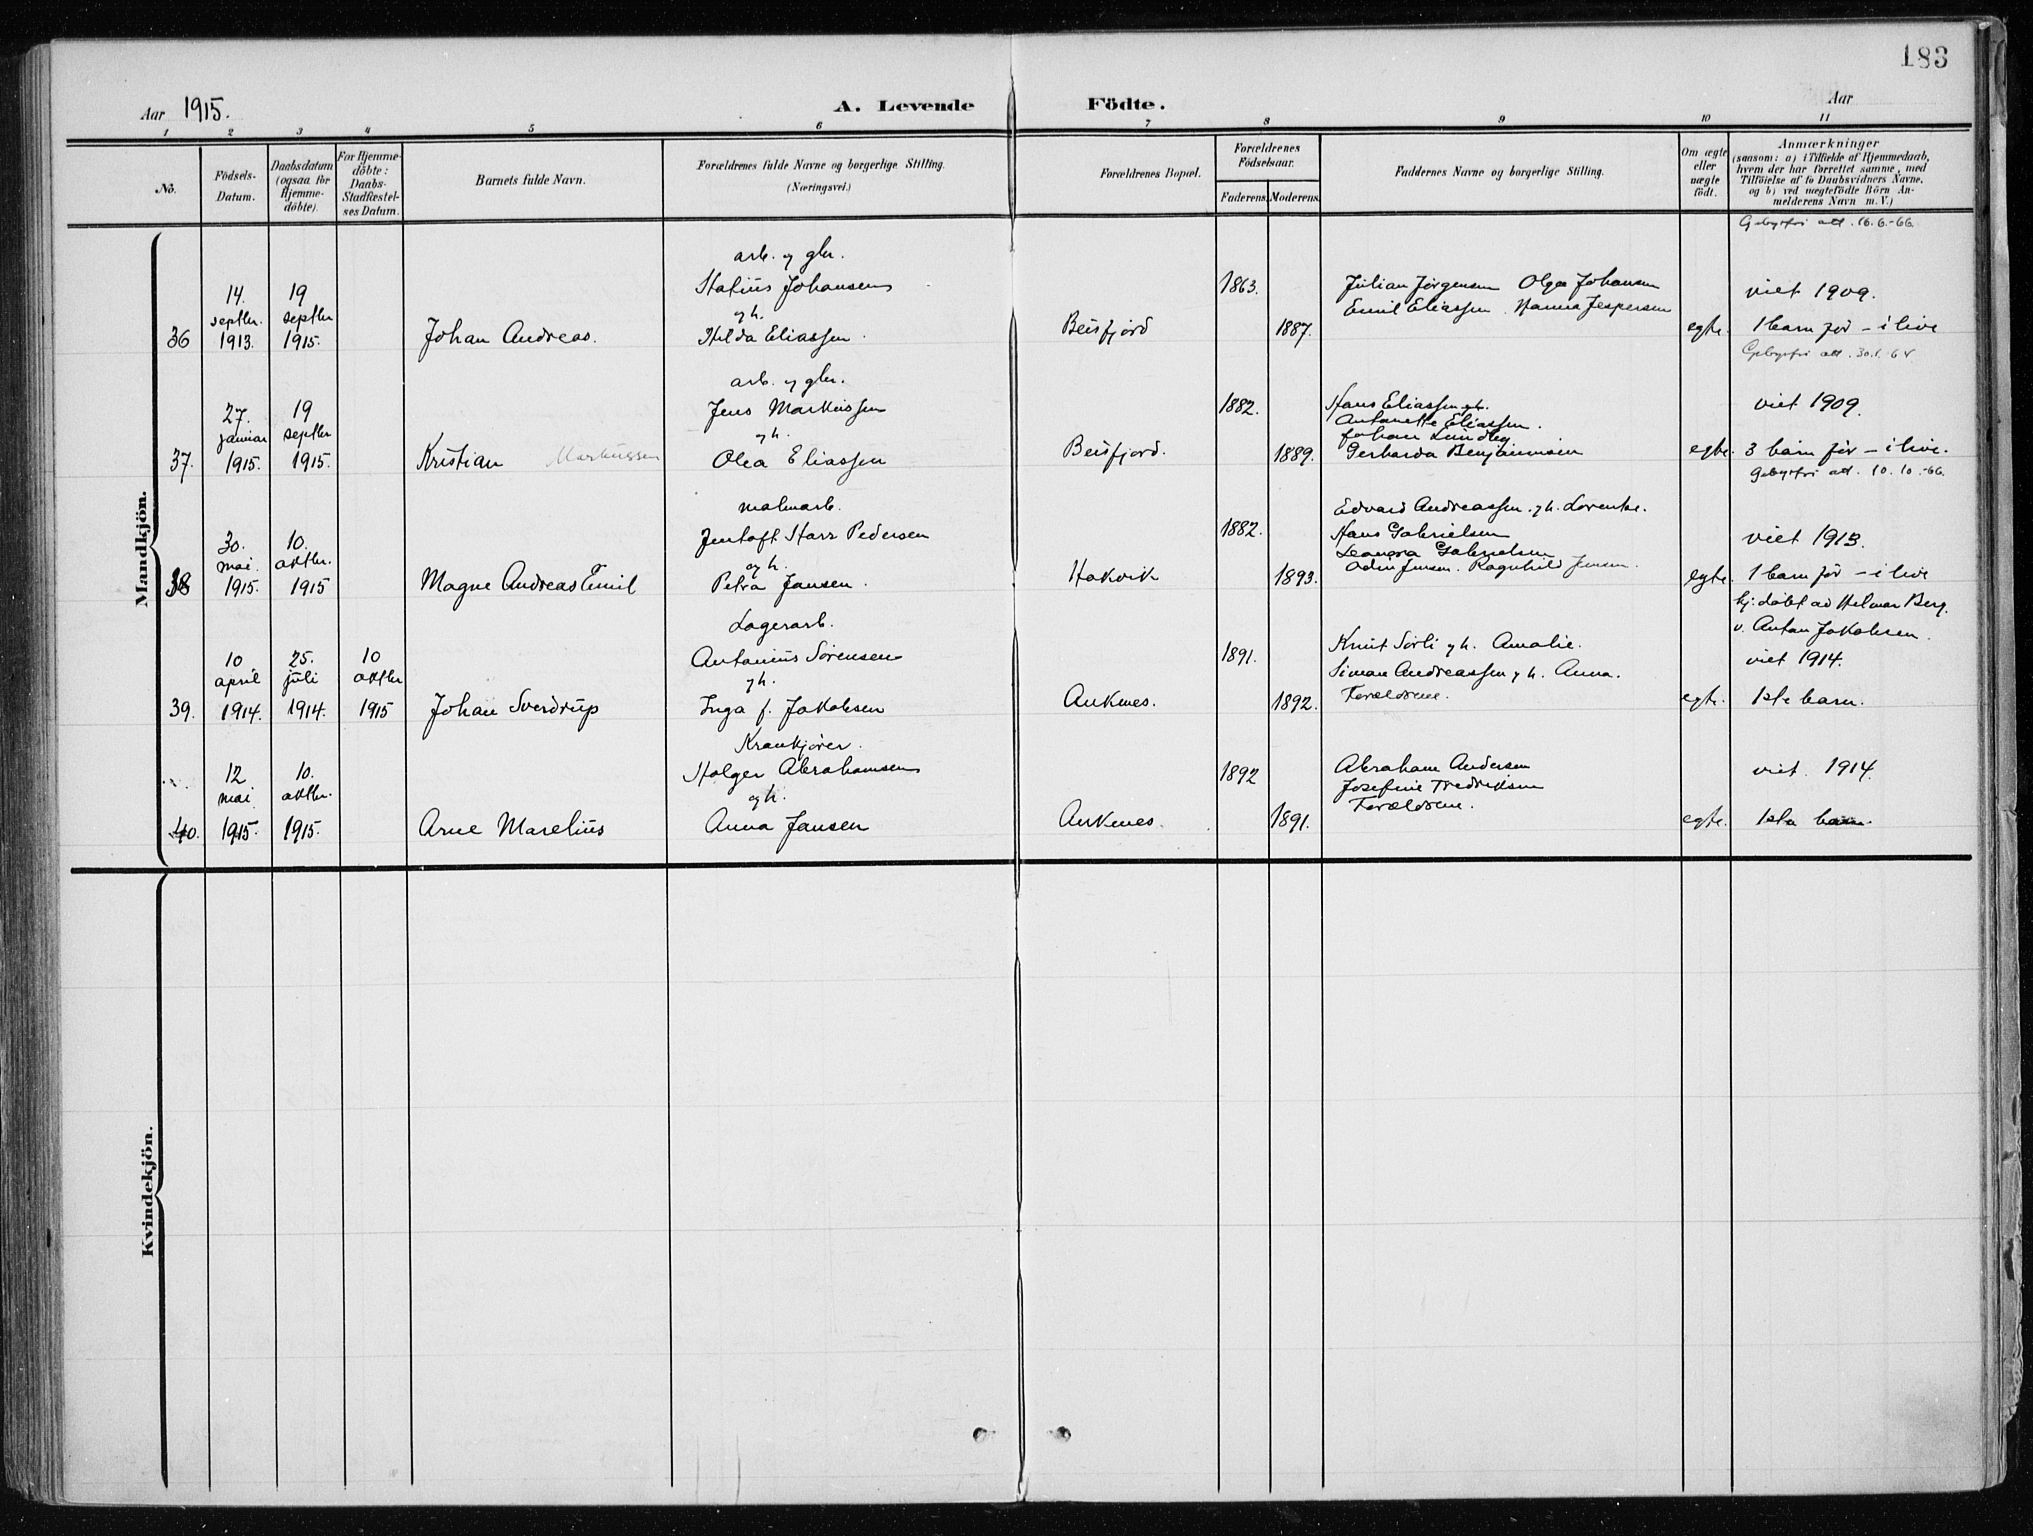 183
Aar 1915. A. Levende Födte. Aar
1 2 3 4 5 6 7 8 9 10 11
No.
Födsels-
Datum.
Daabsdatum
(ogsaa for
Hjemme-
döbte).
For Hjemme-
döbte:
Daabs-
Stadfæstel-
ses Datum.
Barnets fulde Navn.
Forældrenes fulde Navne og borgerlige Stilling.
(Næringsvei.)
Forældrenes Bopæl.
Forældrenes
Födselsaar.
Faderens. Moderens.
Faddernes Navne og borgerlige Stilling.
Om ægte
eller
uægte
födt.
Anmærkninger
(saasom: a) i Tilfælde af Hjemmedaab,
hvem der har forrettet samme, med
Tilföielse af to Daabsvidners Navne,
og b) ved uægtefödte Börn An-
melderens Navn m. V.)
Mandkjön.
36
14.
septbr.
1913.
19
septbr
1915.
Johan Andreas.
arb. og gbr.
Statius Johansen
og h.
Hilda Eliassen
Beisfjord
1863.
1887.
Julian Jørgensen Olga Johansen
Emil Eliassen. Hanna Jespersen
egte.
Gebyrfri att. 16.6.-66.
viet 1909.
1 barn før - i live
37.
27.
januar
1915.
19
septbr
1915.
Kristian Markussen
arb. og gbr.
Jens Markussen
og h.
Olea Eliassen
Beisfjord.
1882.
1889.
Hans Eliassen
Antonette Eliassen.
Johan Lundby
Gerharda Benjaminsen
egte.
Gebyrfri att. 30.1.-64
viet 1909.
3 barn før - i live.
38
30.
mai.
1915.
10.
oktbr.
1915
Magne Andreas Emil
malmarb.
Jentoft Starr Pedersen
og h.
Petra Jansen.
Hakvik
1882.
1893.
Edvard Andreassen. og h. Lorentse.
Hans Gabrielsen
Leonora Gabrielsen
Odin Jensen. Ragnhild Jensen.
egte.
Gebyrfri att. 10.10.-66.
viet 1913.
1 barn før - i live
39.
10
april
1914.
25.
juli
1914.
10
oktbr
1915
Johan Sverdrup
Lagerarb.
Antonius Sørensen
og h.
Inga f. Jakobsen
Ankenes.
1891.
1892.
Knut Sørli og h. Amalie.
Simon Andreassen og h. Anna.
Forældrene.
egte.
hj. døbt av Helmar Berg.
v. Anton Jakobsen.
viet 1914.
1ste barn.
40.
12
mai
1915.
10.
oktbr.
1915.
Arne Marelius
Krankjører.
Holger Abrahamsen
og h.
Anna Jansen
Ankenes.
1892
1891.
Abraham Andersen
Josefine Fredriksen
Forældrene.
egte.
viet. 1914.
1ste barn.
Kvindekjön.